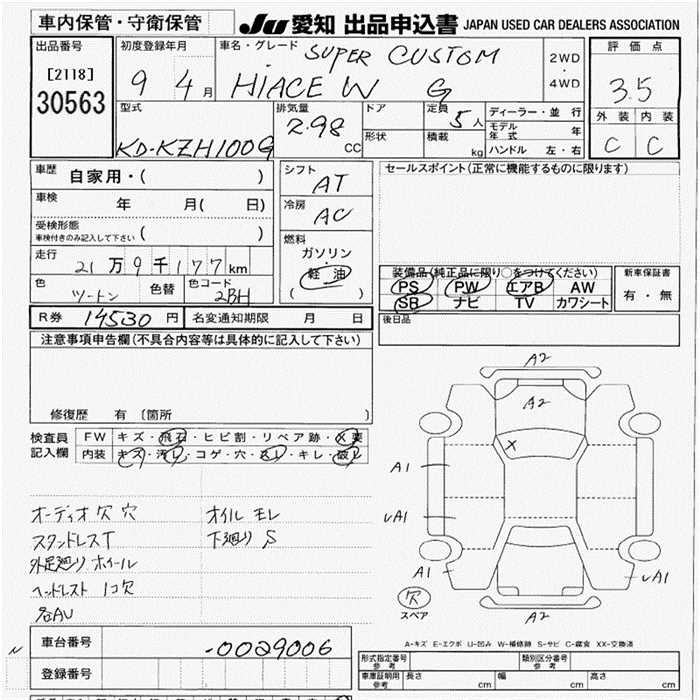 車内保管・守衛保管 JU愛知 出品申込書 JAPAN USED CAR DEALERS ASSOCIATION
出品番号 初度登録年月 車名・グレード SUPER CUSTOM 2WD・4WD 評価点
[2118] 9 4月 HIACE W G 3.5
30563 型式 排気量 ドア 定員 5人 ディーラー・並行 外装 内装
KD-KZH100G 2.98 CC 形状 積載 kg モデル年式 年 C C
ハンドル 左・右
車歴 自家用・( ) シフト AT セールスポイント(正常に機能するものに限ります)
車検 年 月( 日) 冷房 AC
受検形態 ( )
車検付きのみ記入して下さい
燃料
走行 21万9千177km ガソリン・軽油 装備品(純正品に限り○をつけてください) 新車保証書
色 ツートン 色替 色コード 2BH ( ) PS PW エアB AW 有・無
SR ナビ TV カワシート
R券 14530円 名変通知期限 月 日 後日品
注意事項申告欄(不具合内容等は具体的に記入して下さい)
修復歴 有 [箇所 ]
検査員記入欄 FW キズ・飛石・ヒビ割・リペア跡・X要
内装 キズ・汚レ・コゲ・穴・スレ・キレ・破レ
A2
A2
X
A1
オーディオ欠 穴 オイルモレ
スタンドレスT 下廻り S
外足廻り ホイール
ヘッドレスト 1コ欠
各AU
A1
A1 A1
欠
スペア
A2
A-キズ E-エクボ U-凹み W-補修跡 S-サビ C-腐食 XX-交換済
車台番号 -0029006
登録番号
形式指定番号 参考 類別区分番号 参考
車庫証明用 参考 長さ cm 幅 cm 高さ cm